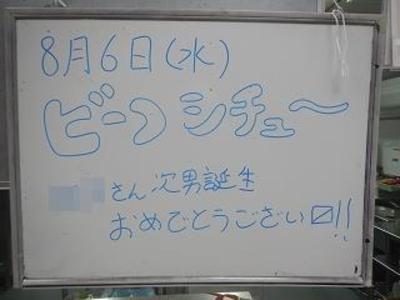 8月6日(水)
ビーフシチュー
さん次男誕生
おめでとうござい〼!!